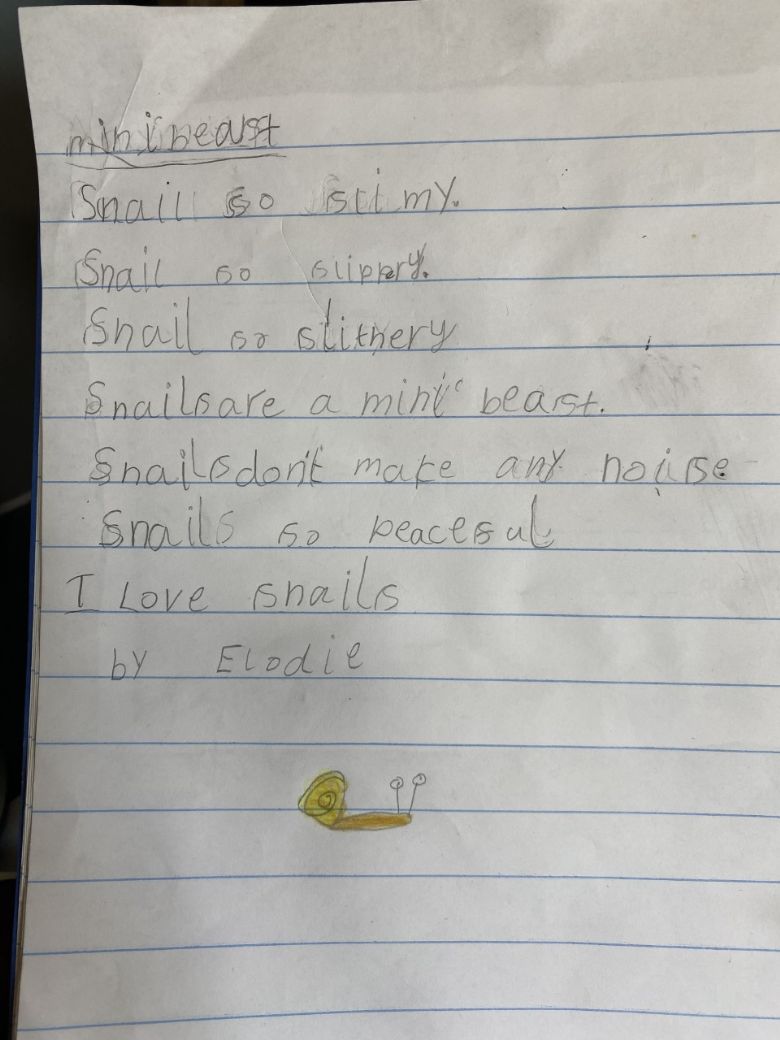 minibeast
Snail so slimy.
Snail so slippery.
Snail so slithery
Snails are a mini beast.
Snails don't make any noise
Snails so peaceful
I Love snails
by Elodie